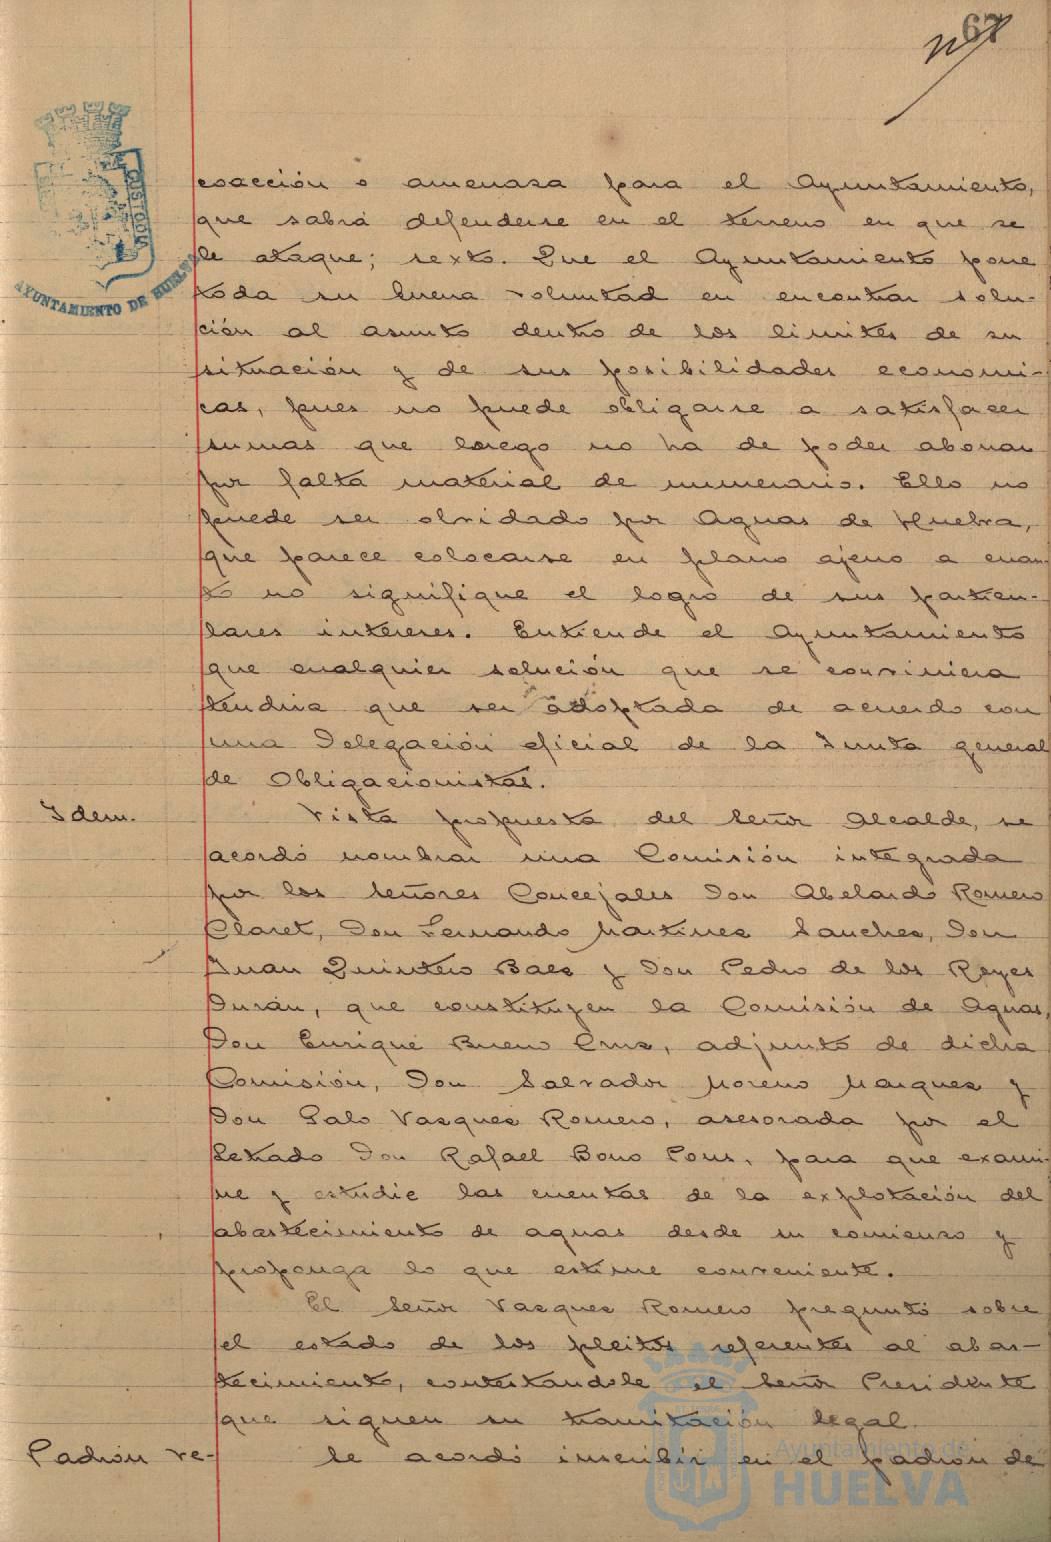 67
CUSTODIA
AYUNTAMIENTO DE HUELVA
coacción o amenaza para el Ayuntamiento,
que sabrá defenderse en el terreno en que se
le ataque; sexto. Que el Ayuntamiento pone
toda su buena voluntad en encontrar solu-
ción al asunto dentro de los limites de su
situación y de sus posibilidades economi-
cas, pues no puede obligarse a satisfacer
sumas que luego no ha de poder abonar
por falta material de numerario. Ello no
puede ser olvidado por Aguas de Huelva,
que parece colocarse en plano ajeno a cuan-
to no signifique el logro de sus particu-
lares intereses. Entiende el Ayuntamiento
que cualquier solución que se conviniera
tendria que ser adoptada de acuerdo con
una Delegación oficial de la Junta general
de Obligacionistas.
Idem.
Vista propuesta del Señor Alcalde, se
acordó nombrar una Comisión integrada
por los Señores Concejales Don Abelardo Romero
Claret, Don Fernando Martinez Sanchez, Don
Juan Quintero Baez y Don Pedro de los Reyes
Durán, que constituyen la Comisión de Aguas,
Don Enrique Bueno Cruz, adjunto de dicha
Comisión, Don Salvador Moreno Marquez y
Don Galo Vazquez Romero, asesorada por el
Letrado Don Rafael Bono Pons, para que exami-
ne y estudie las cuentas de la explotación del
abastecimiento de aguas desde su comienzo y
proponga lo que estime conveniente.
El Señor Vazquez Romero preguntó sobre
el estado de los pleitos referentes al abas-
tecimiento, contestandole el Señor Presidente
que siguen su tramitación legal.
Padrón ve-
Se acordó inscribir en el padrón de
Ayuntamiento de
HUELVA